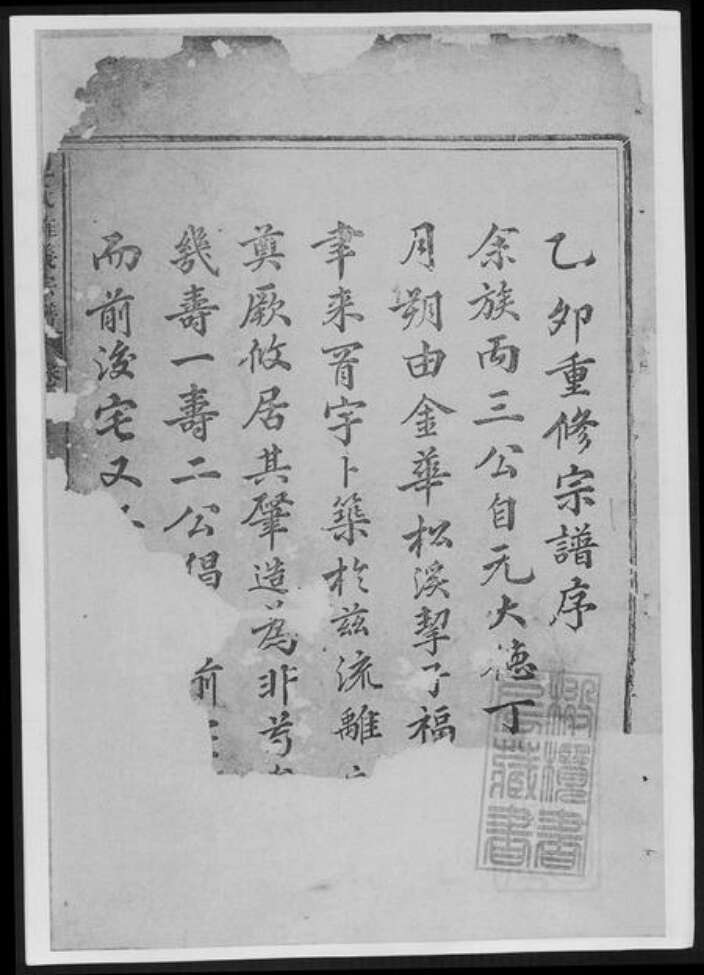 乙卯重修宗譜序
余族丙三公自元大德丁
月朔由金華松溪挈子福
聿来胥宇卜築於兹流離
奠厥攸居其肇造為非艻
幾壽一壽二公倡 前
而前後宅又
義宗譜
樹德書
藏書